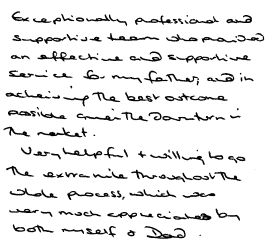 Exceptionally professional and
supportive team who provided
an effective and supportive
service for my father, and in
acheiving the best outcome
possible given the downturn in
the market.
Very helpful + willing to go
the extra mile throughout the
whole process, which was
very much appreciated by
both myself & Dad.